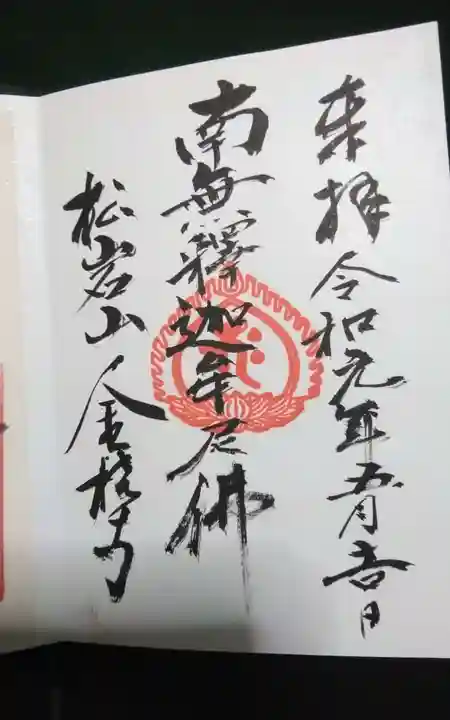 奉拝 令和元年五月吉日
南無釋迦牟尼佛
松岩山 寺